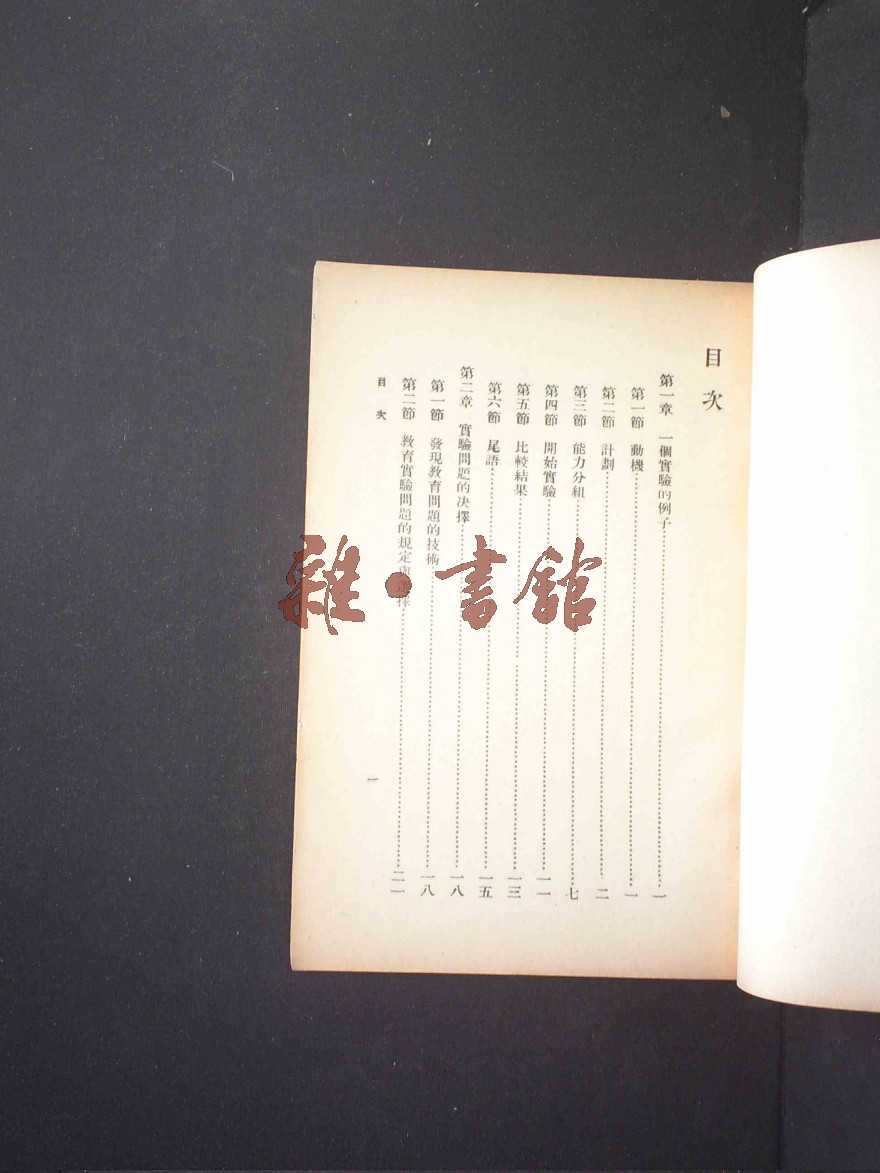 目次
第一章 一個實驗的例子……一
第一節 動機……一
第二節 計劃……二
第三節 能力分組……七
第四節 開始實驗……一一
第五節 比較結果……一三
第六節 尾語……一五
第二章 實驗問題的决擇……一八
第一節 發現教育問題的技術……一八
第二節 教育實驗問題的規定與選擇……二一
目次
一
雜·書館